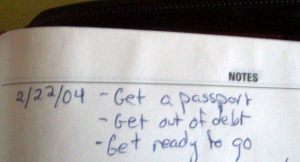 NOTES
2/22/04 - Get a passport
- Get out of debt
- Get ready to go